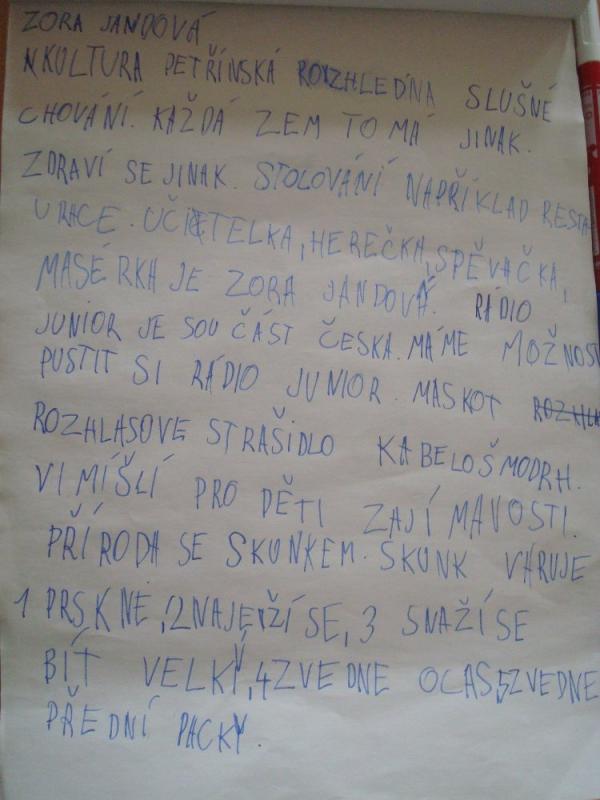 ZORA JANDOVÁ
KULTURA PETŘÍNSKÁ ROZHLEDNA SLUŠNÉ
CHOVÁNÍ. KAŽDÁ ZEM TO MÁ JINAK.
ZDRAVÍ SE JINAK. STOLOVÁNÍ NAPŘÍKLAD RESTA
URACE. UČITELKA, HEREČKA, SPĚVAČKA,
MASÉRKA JE ZORA JANDOVÁ. RÁDIO
JUNIOR JE SOUČÁST ČESKA. MÁME MOŽNOST
PUSTIT SI RÁDIO JUNIOR. MASKOT
ROZHLASOVE STRAŠIDLO KABELOŠMODRH.
VIMÍŠLÍ PRO DĚTI ZAJÍMAVOSTI.
PŘÍRODA SE SKUNKEM. SKUNK VARUJE
1 PRSKNE, 2 NAJEŽÍ SE, 3 SNAŽÍ SE
BÍT VELKÝ, 4 ZVEDNE OCAS, 5 ZVEDNE
PŘEDNÍ PACKY.